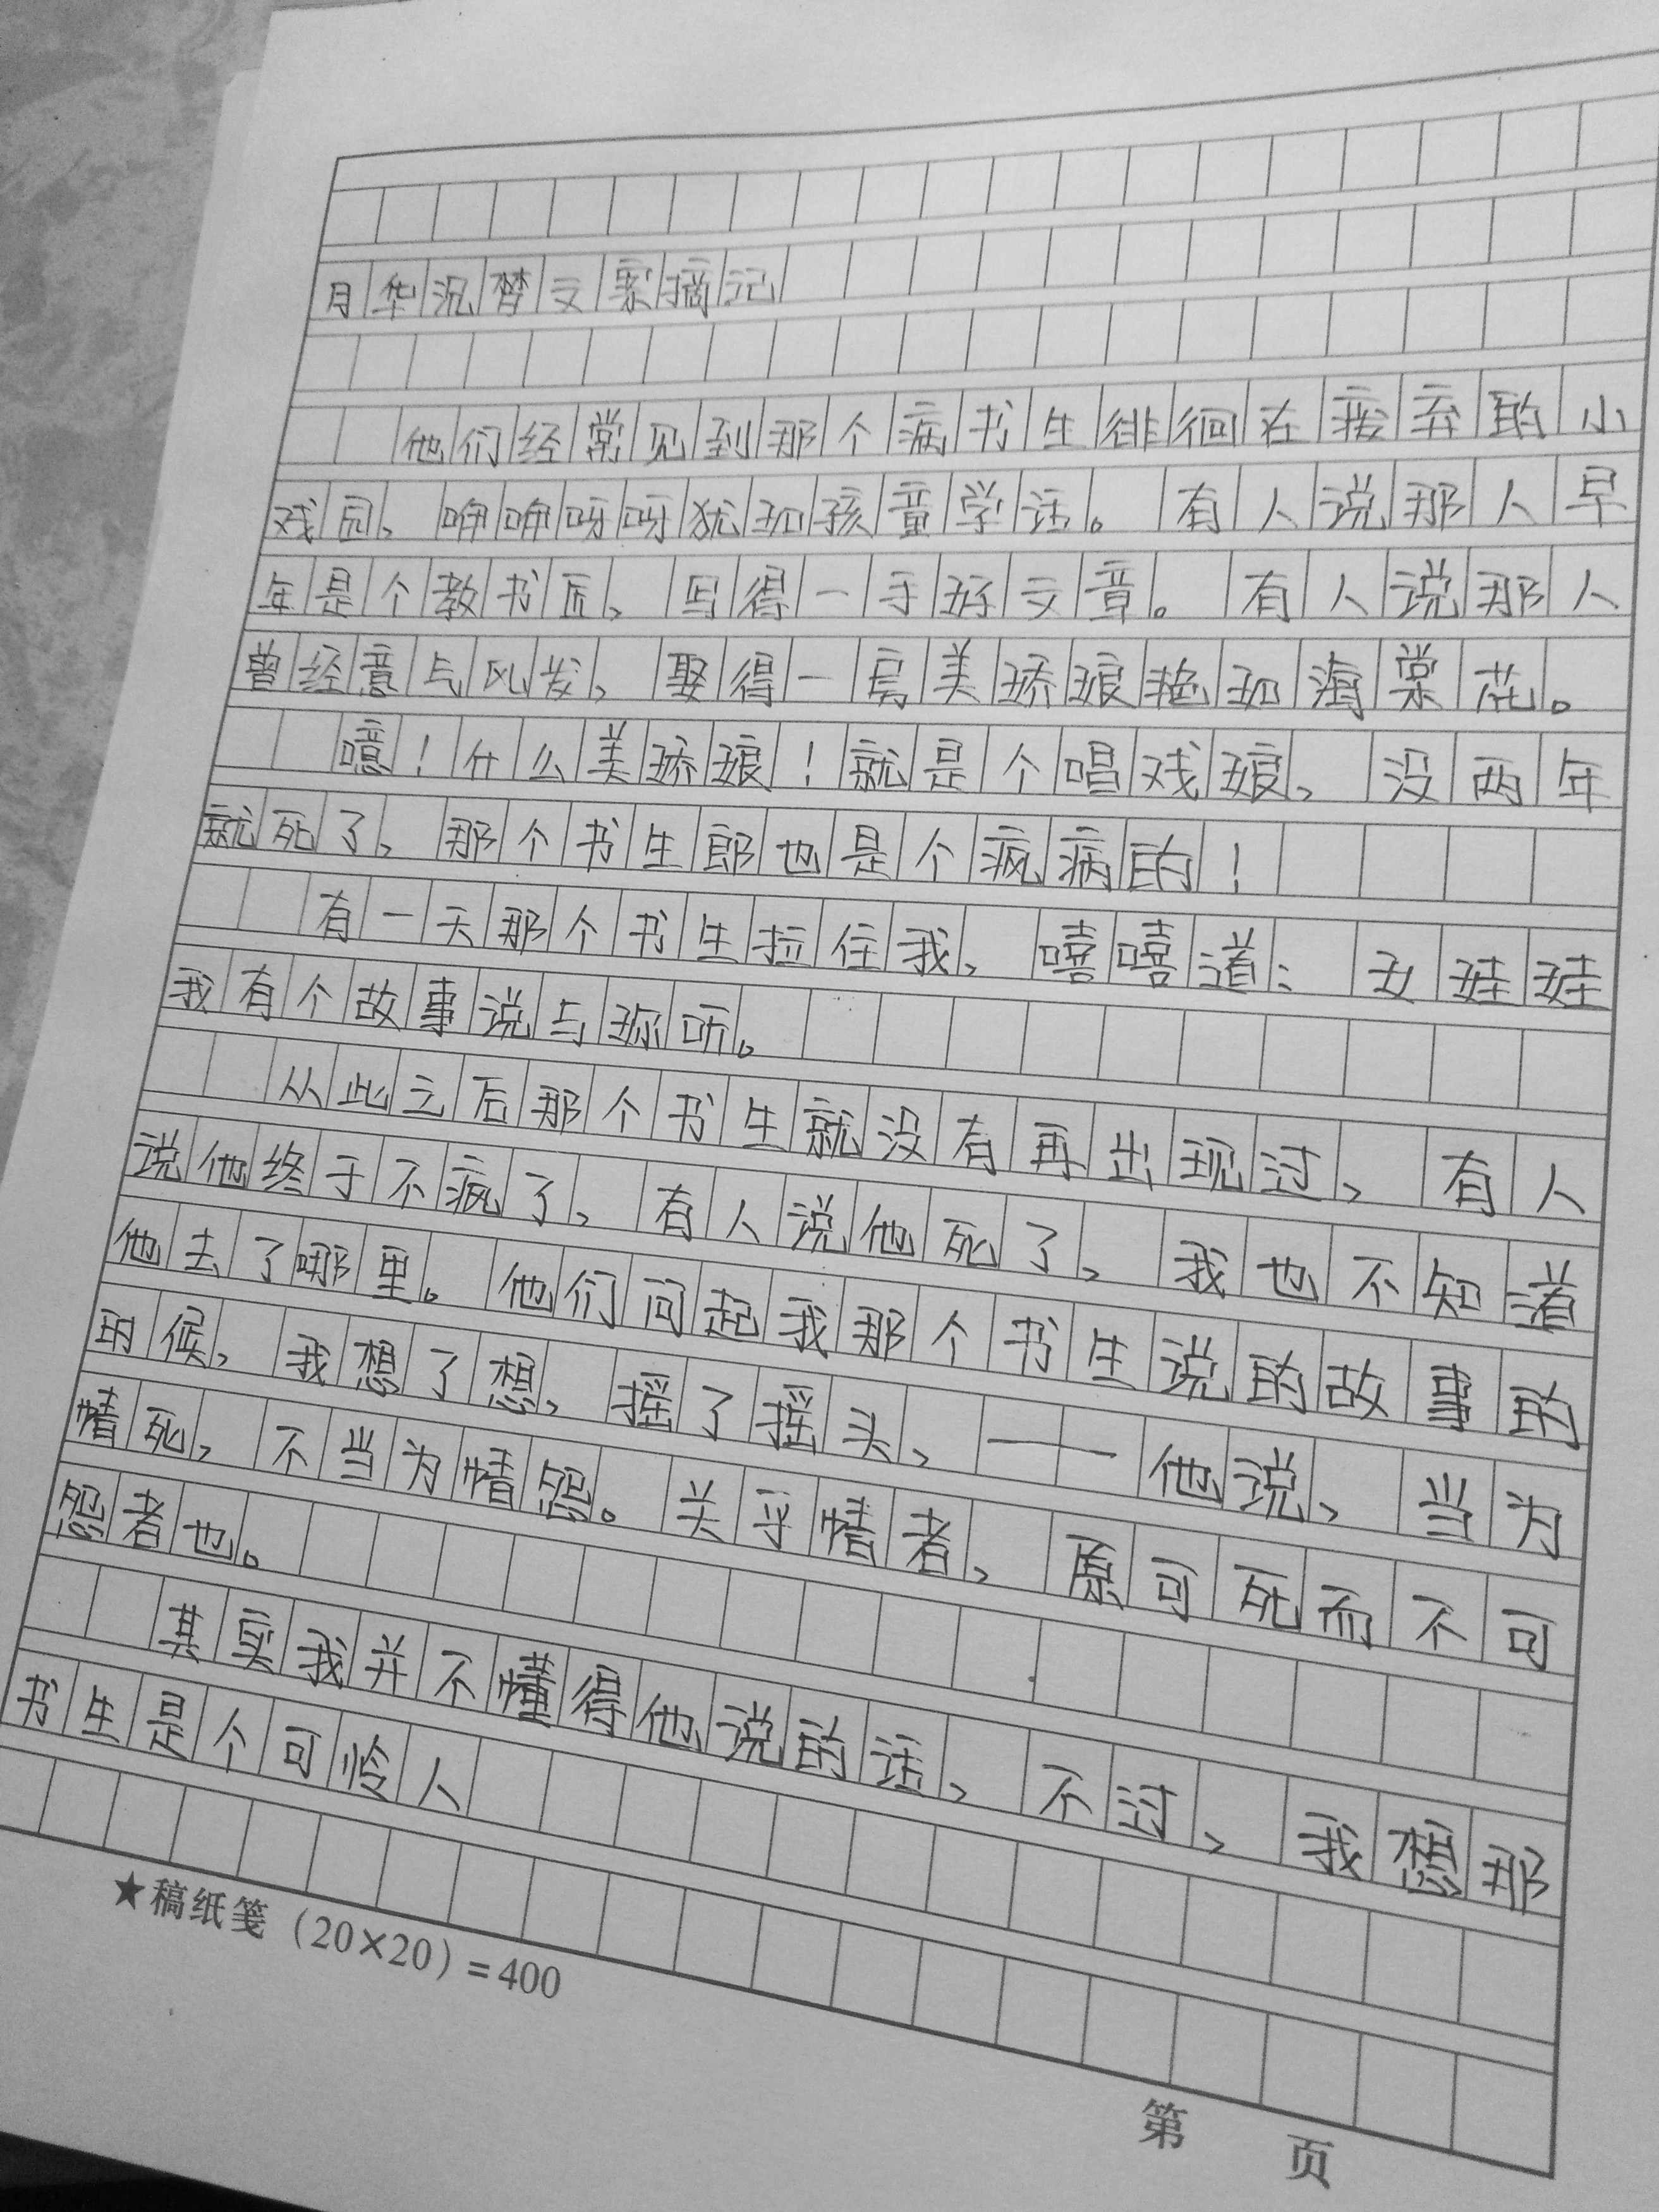 月华沉梦文案摘记
他们经常见到那个病书生徘徊在废弃的小
戏园、咿咿呀呀犹如孩童学话。有人说那人早
年是个教书匠、写得一手好文章。有人说那人
曾经意气风发、娶得一房美娇娘艳如海棠花。
噫！什么美娇娘！就是个唱戏娘、没两年
就死了、那个书生郎也是个疯病的！
有一天那个书生拉住我、嘻嘻道：女娃娃
我有个故事说与你听。
从此之后那个书生就没有再出现过、有人
说他终于不疯了、有人说他死了、我也不知道
他去了哪里。他们问起我那个书生说的故事的
时候、我想了想、摇了摇头、——他说、当为
情死、不当为情怨。关乎情者、原可死而不可
怨者也。
其实我并不懂得他说的话、不过、我想那
书生是个可怜人
★稿纸笺（20×20）=400
第 页